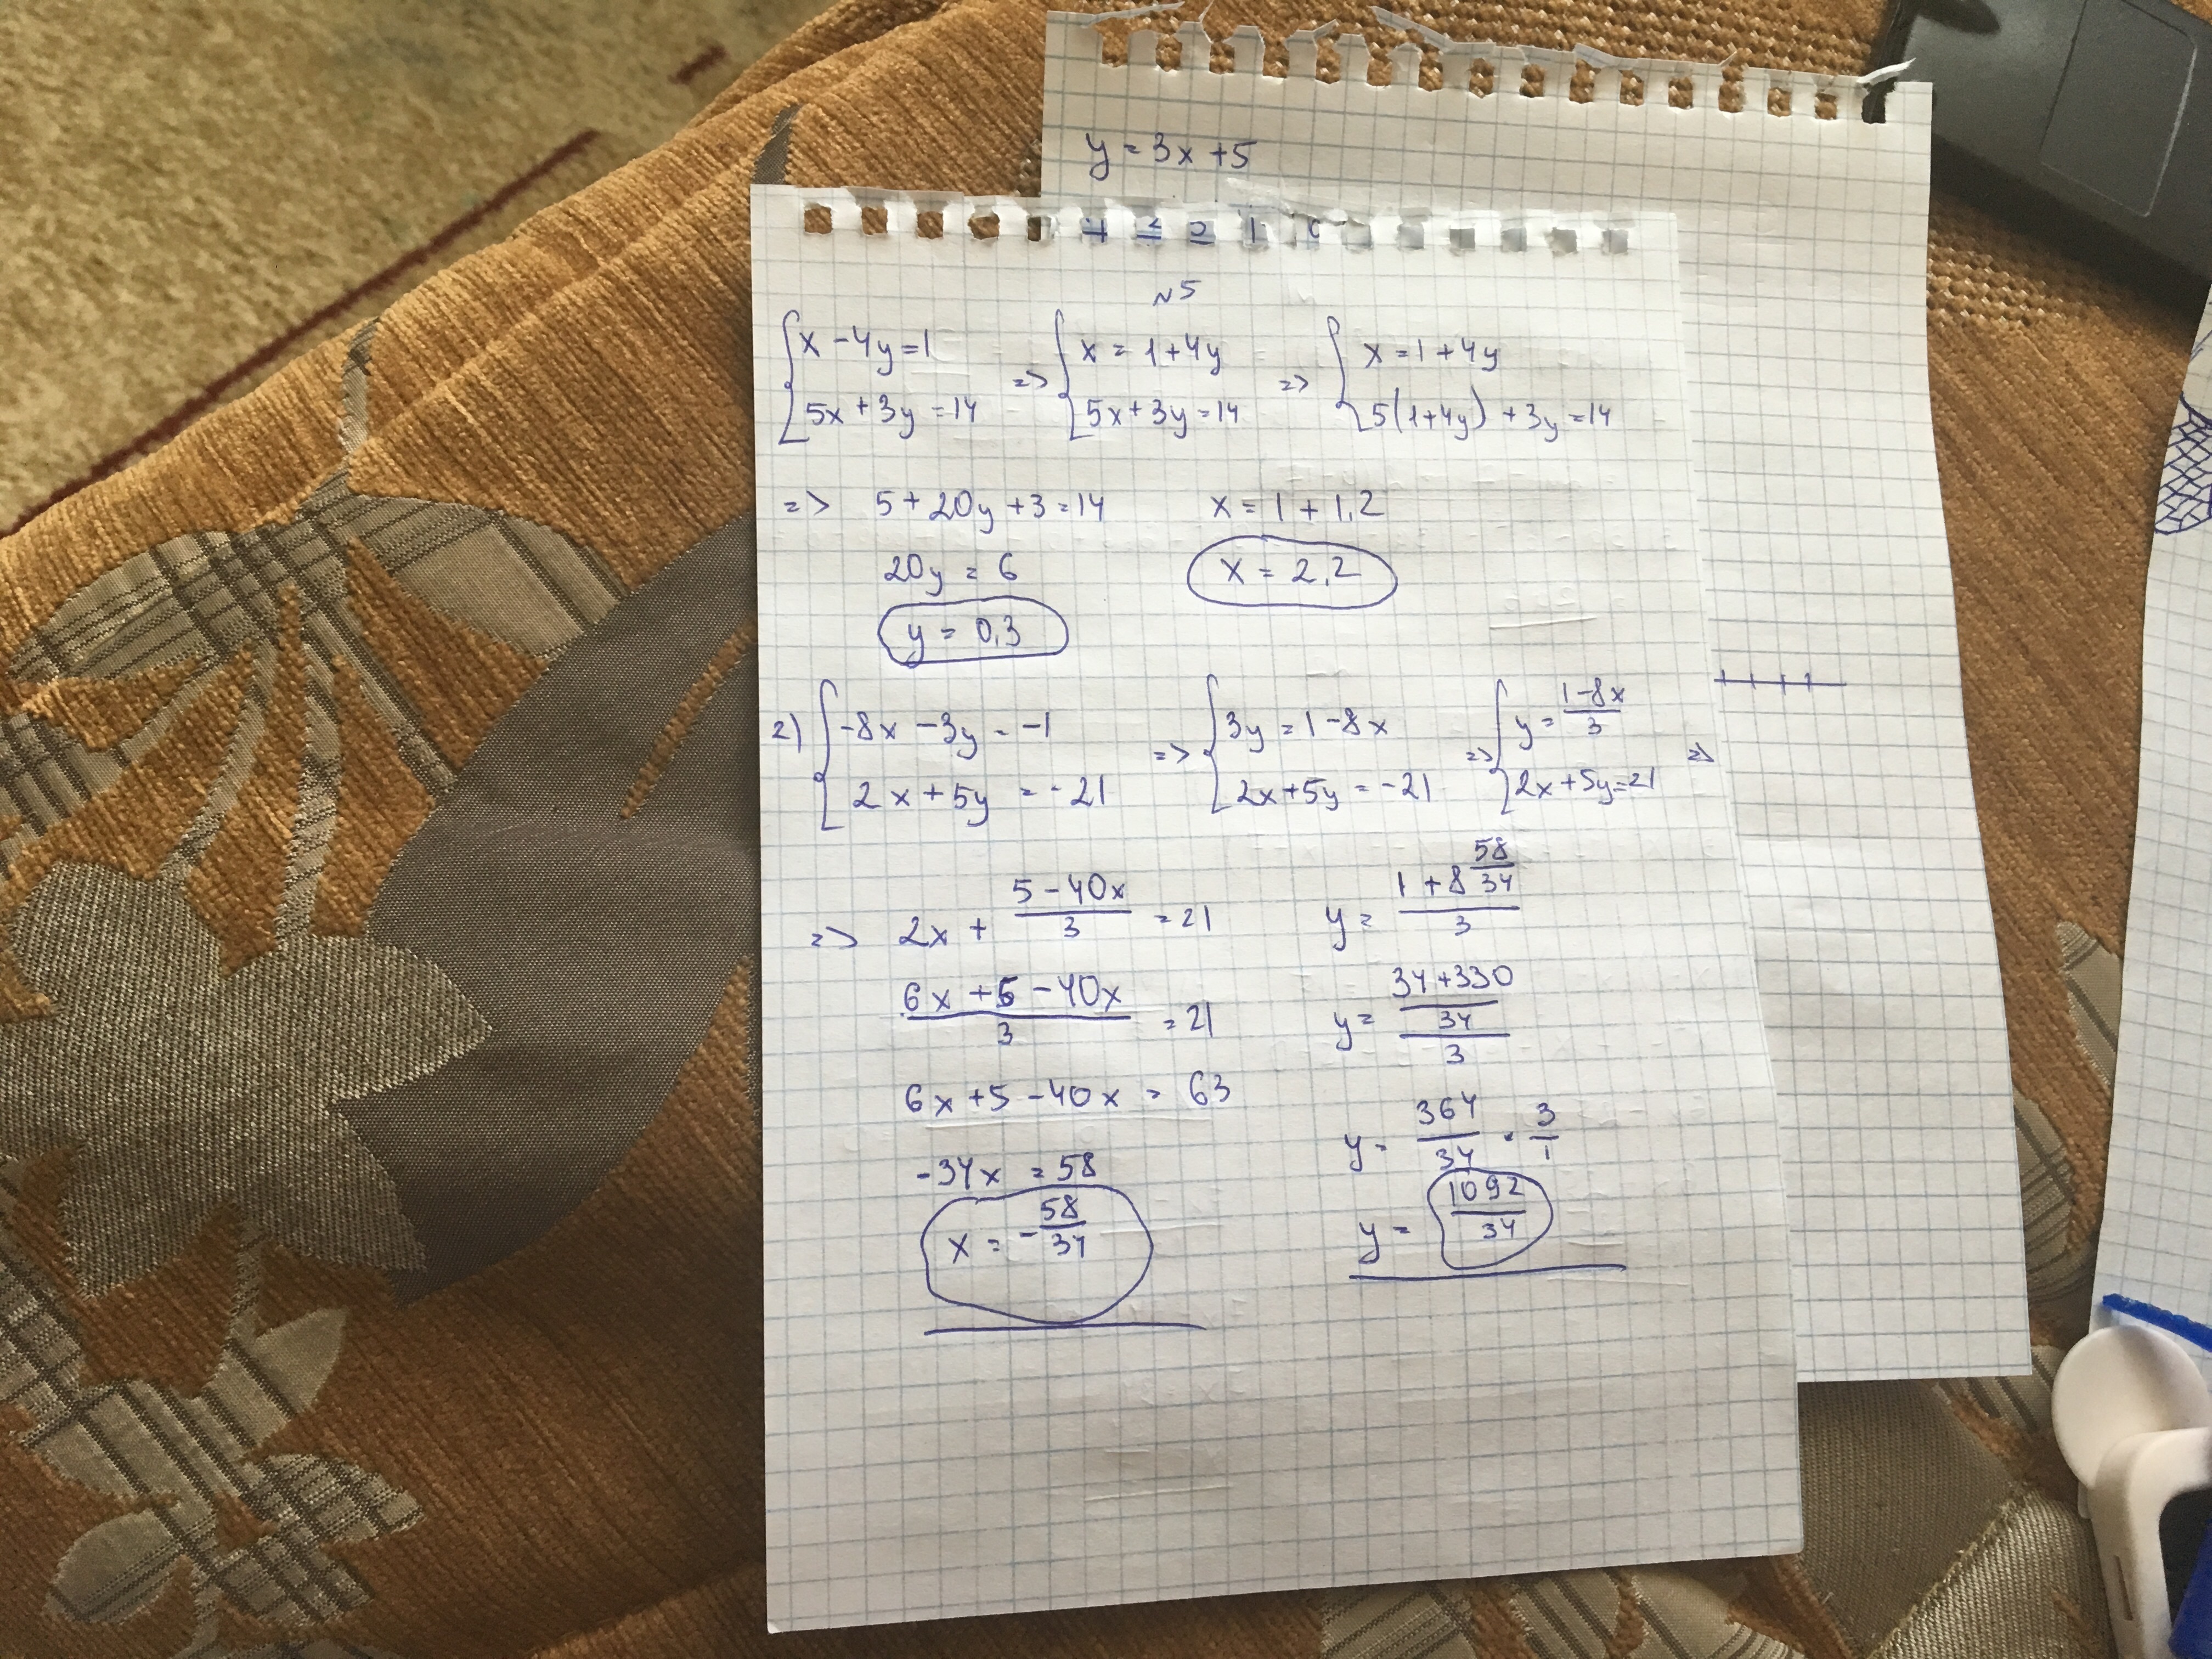 y = 3x + 5
N5
{ x - 4y = 1 => { x = 1 + 4y => { x = 1 + 4y
{ 5x + 3y = 14 { 5x + 3y = 14 { 5(1+4y) + 3y = 14
=> 5 + 20y + 3 = 14 x = 1 + 1,2
20y = 6 x = 2,2
y = 0,3
2) { -8x - 3y = -1 => { 3y = 1 - 8x => { y = (1-8x)/3 =>
{ 2x + 5y = -21 { 2x + 5y = -21 { 2x + 5y = 21
=> 2x + (5 - 40x)/3 = 21 y = (1 + 8 58/34)/3
(6x + 5 - 40x)/3 = 21 y = ((34 + 330)/34)/3
6x + 5 - 40x = 63 y = 364/34 · 3/1
-34x = 58 y = 1092/34
x = -58/34